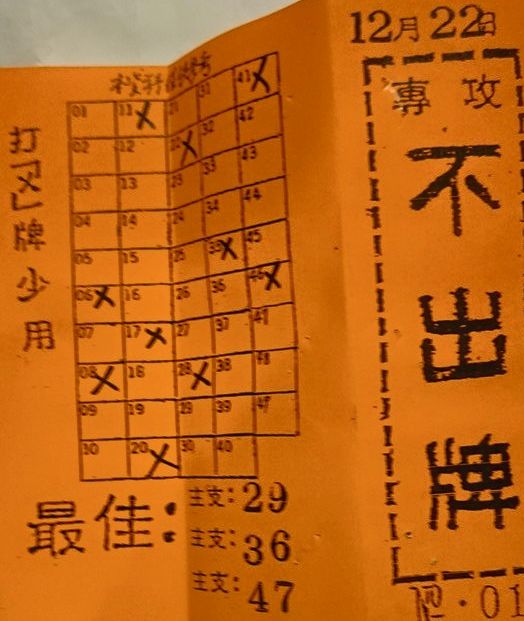 12月22日
專攻
不出牌
本資料僅供參考
打「X」牌少用
01 11X 21 31 41X
02 12 22X 32 42
03 13 23 33 43
04 14 24 34 44
05 15 25 35X 45
06X 16 26 36 46X
07 17X 27 37 47
08X 18 28X 38 48
09 19 29 39 49
10 20X 30 40
最佳:
主支:29
主支:36
主支:47
01